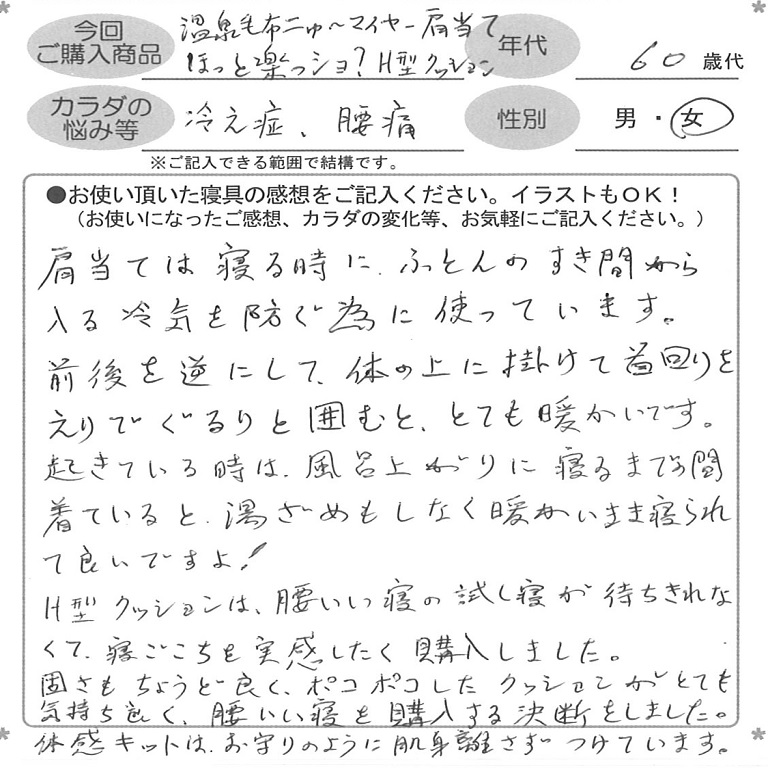 今回
ご購入商品
温泉毛布ニュ〜マイヤー肩当て
ほっと楽っショ?H型クッション
年代
60歳代
カラダの
悩み等
冷え症、腰痛
性別
男・女
※ご記入できる範囲で結構です。
●お使い頂いた寝具の感想をご記入ください。イラストもOK!
(お使いになったご感想、カラダの変化等、お気軽にご記入ください。)
肩当ては寝る時に、ふとんのすき間から
入る冷気を防ぐ為に使っています。
前後を逆にして、体の上に掛けて首回りを
えりでぐるりと囲むと、とても暖かいです。
起きている時は、風呂上がりに寝るまでの間
着ていると、湯ざめもしなく暖かいまま寝られ
て良いですよ!
H型クッションは、腰いい寝の試し寝が待ちきれな
くて、寝ごこちを実感したく購入しました。
固さもちょうど良く、ポコポコしたクッションがとても
気持ち良く、腰いい寝を購入する決断をしました。
体感キットは、お守りのように肌身離さずつけています。